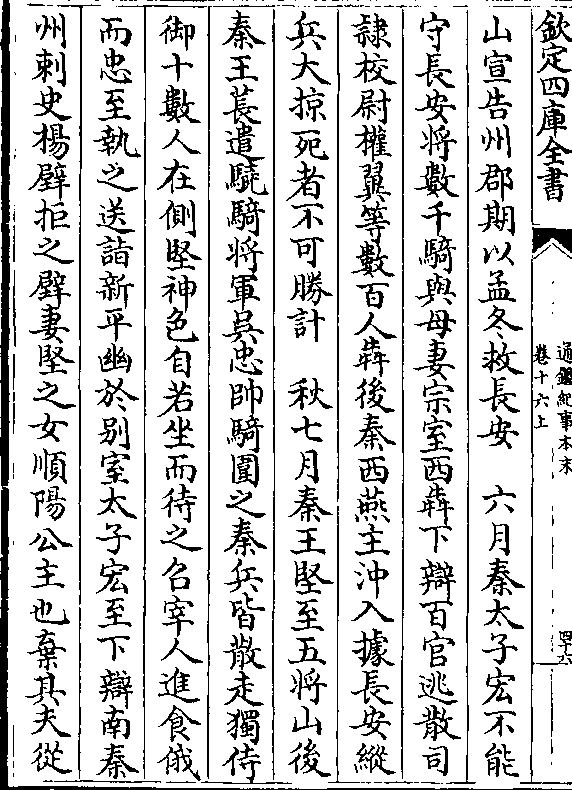 欽定四庫全書
通鑑紀事本末
卷十六上
四十六
山宣告州郡期以孟冬救長安　六月秦太子宏不能
守長安将數千騎與母妻宗室西犇下辯百官逃散司
隷校尉權翼等數百人犇後秦西燕主沖入據長安縱
兵大掠死者不可勝計　秋七月秦王堅至五將山後
秦王萇遣驍騎将軍吳忠帥騎圍之秦兵皆散走獨侍
御十數人在側堅神色自若坐而待之召宰人進食俄
而忠至執之送詣新平幽於别室太子宏至下辯南秦
州刺史楊璧拒之璧妻堅之女順陽公主也棄其夫從